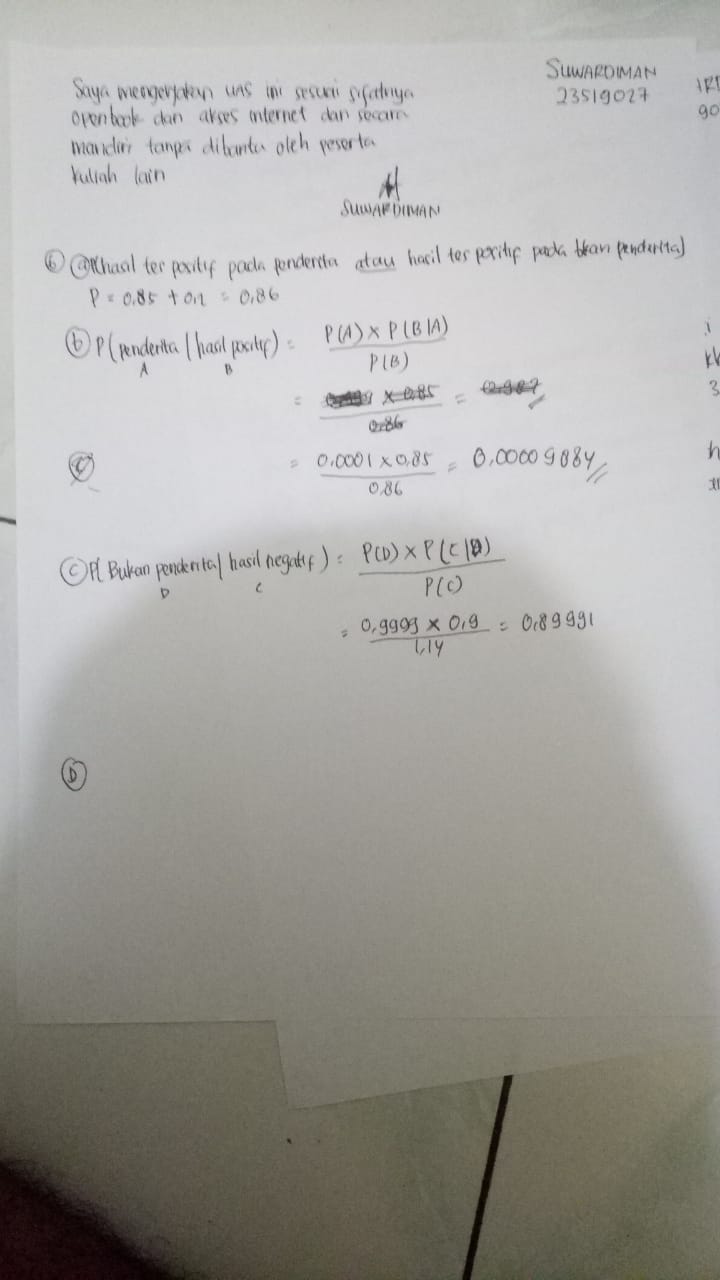 SUWARDIMAN
23519027
Saya mengerjakan uas ini sesuai sifatnya
openbook dan akses internet dan secara
mandiri tanpa dibantu oleh peserta
kuliah lain
SUWARDIMAN
go
6 a hasil tes positif pada penderita atau hasil tes positif pada bkan penderita)
P = 0,85 + 0,1 = 0,86
b P(penderita | hasil positif) = P(A) x P(B|A)
A B P(B)
x 0.85 =
0.86
c
= 0.0001 x 0,85 = 0,00009884
0,86
c P( Bukan penderita | hasil negatif ) = P(D) x P(C|D)
D C P(C)
= 0,9999 x 0,9 = 0,89991
1,14
D
3
h